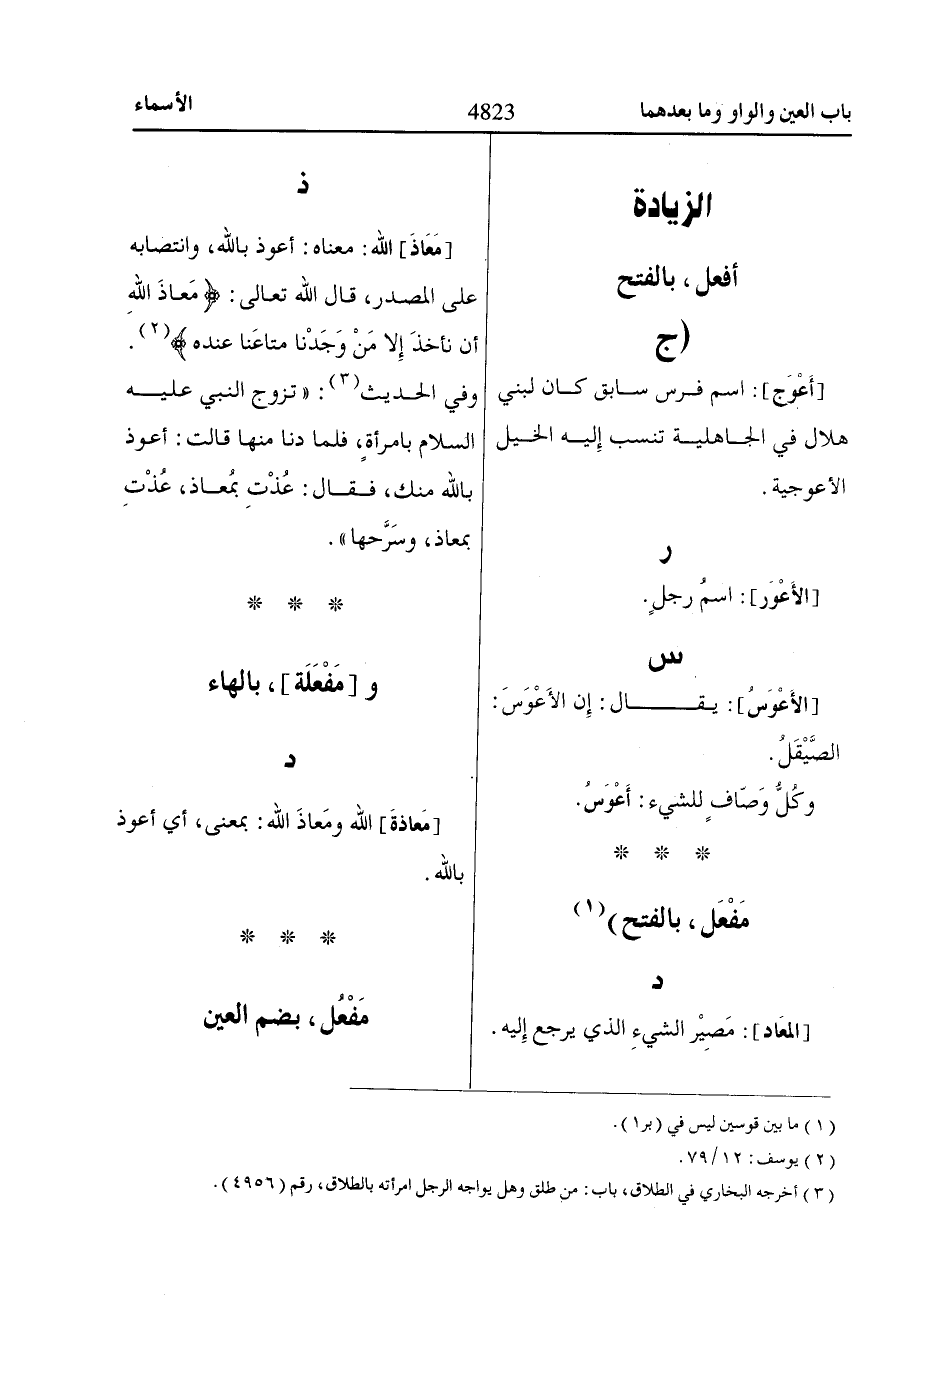 باب العين والواو وما بعدهما
4823
الأسماء
الزيادة
أفعل، بالفتح
(ج
[أَعْوَج]: اسم فرس سابق كان لبني
هلال في الجاهلية تنسب إليه الخيل
الأعوجية.
ر
[الأَعْوَر]: اسمُ رجلٍ.
س
[الأَعْوَسُ]: يقال: إن الأَعْوَسَ:
الصَّيْقَلُ.
وكُلُّ وَصّافٍ للشيء: أَعْوَسُ.
* * *
مَفْعَل، بالفتح)(١)
د
[المَعَاد]: مَصِيْر الشيءِ الذي يرجع إليه.
ذ
[مَعَاذَ] الله: معناه: أعوذ بالله، وانتصابه
على المصدر، قال الله تعالى: ﴿مَعاذَ اللهِ
أن نأخذَ إِلا مَنْ وَجَدْنا متاعَنا عنده﴾(٢).
وفي الحديث(٣): «تزوج النبي عليه
السلام بامرأةٍ، فلما دنا منها قالت: أعوذ
بالله منك، فقال: عُذْتِ بمُعاذ، عُذْتِ
بمعاذ، وسَرَّحها».
* * *
و [مَفْعَلَة]، بالهاء
د
[مَعاذةَ] الله ومَعاذَ الله: بمعنى، أي أعوذ
بالله.
* * *
مَفْعُل، بضم العين
(١) ما بين قوسين ليس في (بر١).
(٢) يوسف: ٧٩/١٢.
(٣) أخرجه البخاري في الطلاق، باب: من طلق وهل يواجه الرجل امرأته بالطلاق، رقم (٤٩٥٦).